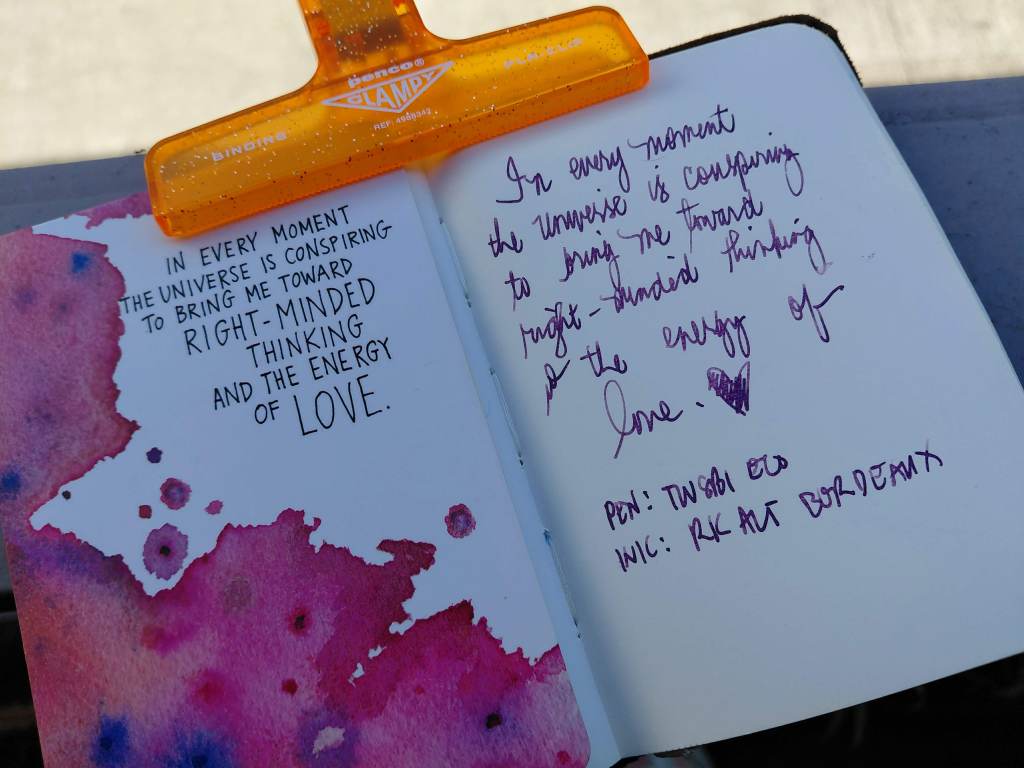 penco®
CLAMPY
BINDING
PLA-CLIP
REF. 4989342
IN EVERY MOMENT
THE UNIVERSE IS CONSPIRING
TO BRING ME TOWARD
RIGHT-MINDED
THINKING
AND THE ENERGY
OF LOVE.
In every moment
the universe is conspiring
to bring me toward
right-minded thinking
& the energy of
love.
PEN: TWSBI ECO
INK: RK ALT BORDEAUX